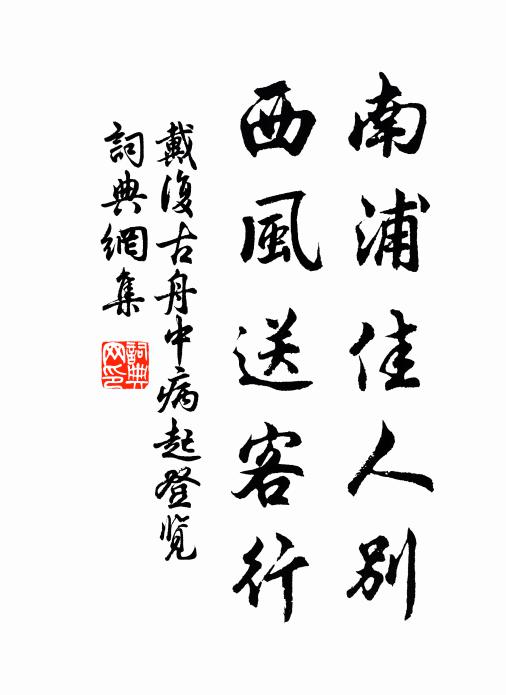 南浦佳人别
西風送客行
戴復古舟中病起登览
詞典網集
詞典網印